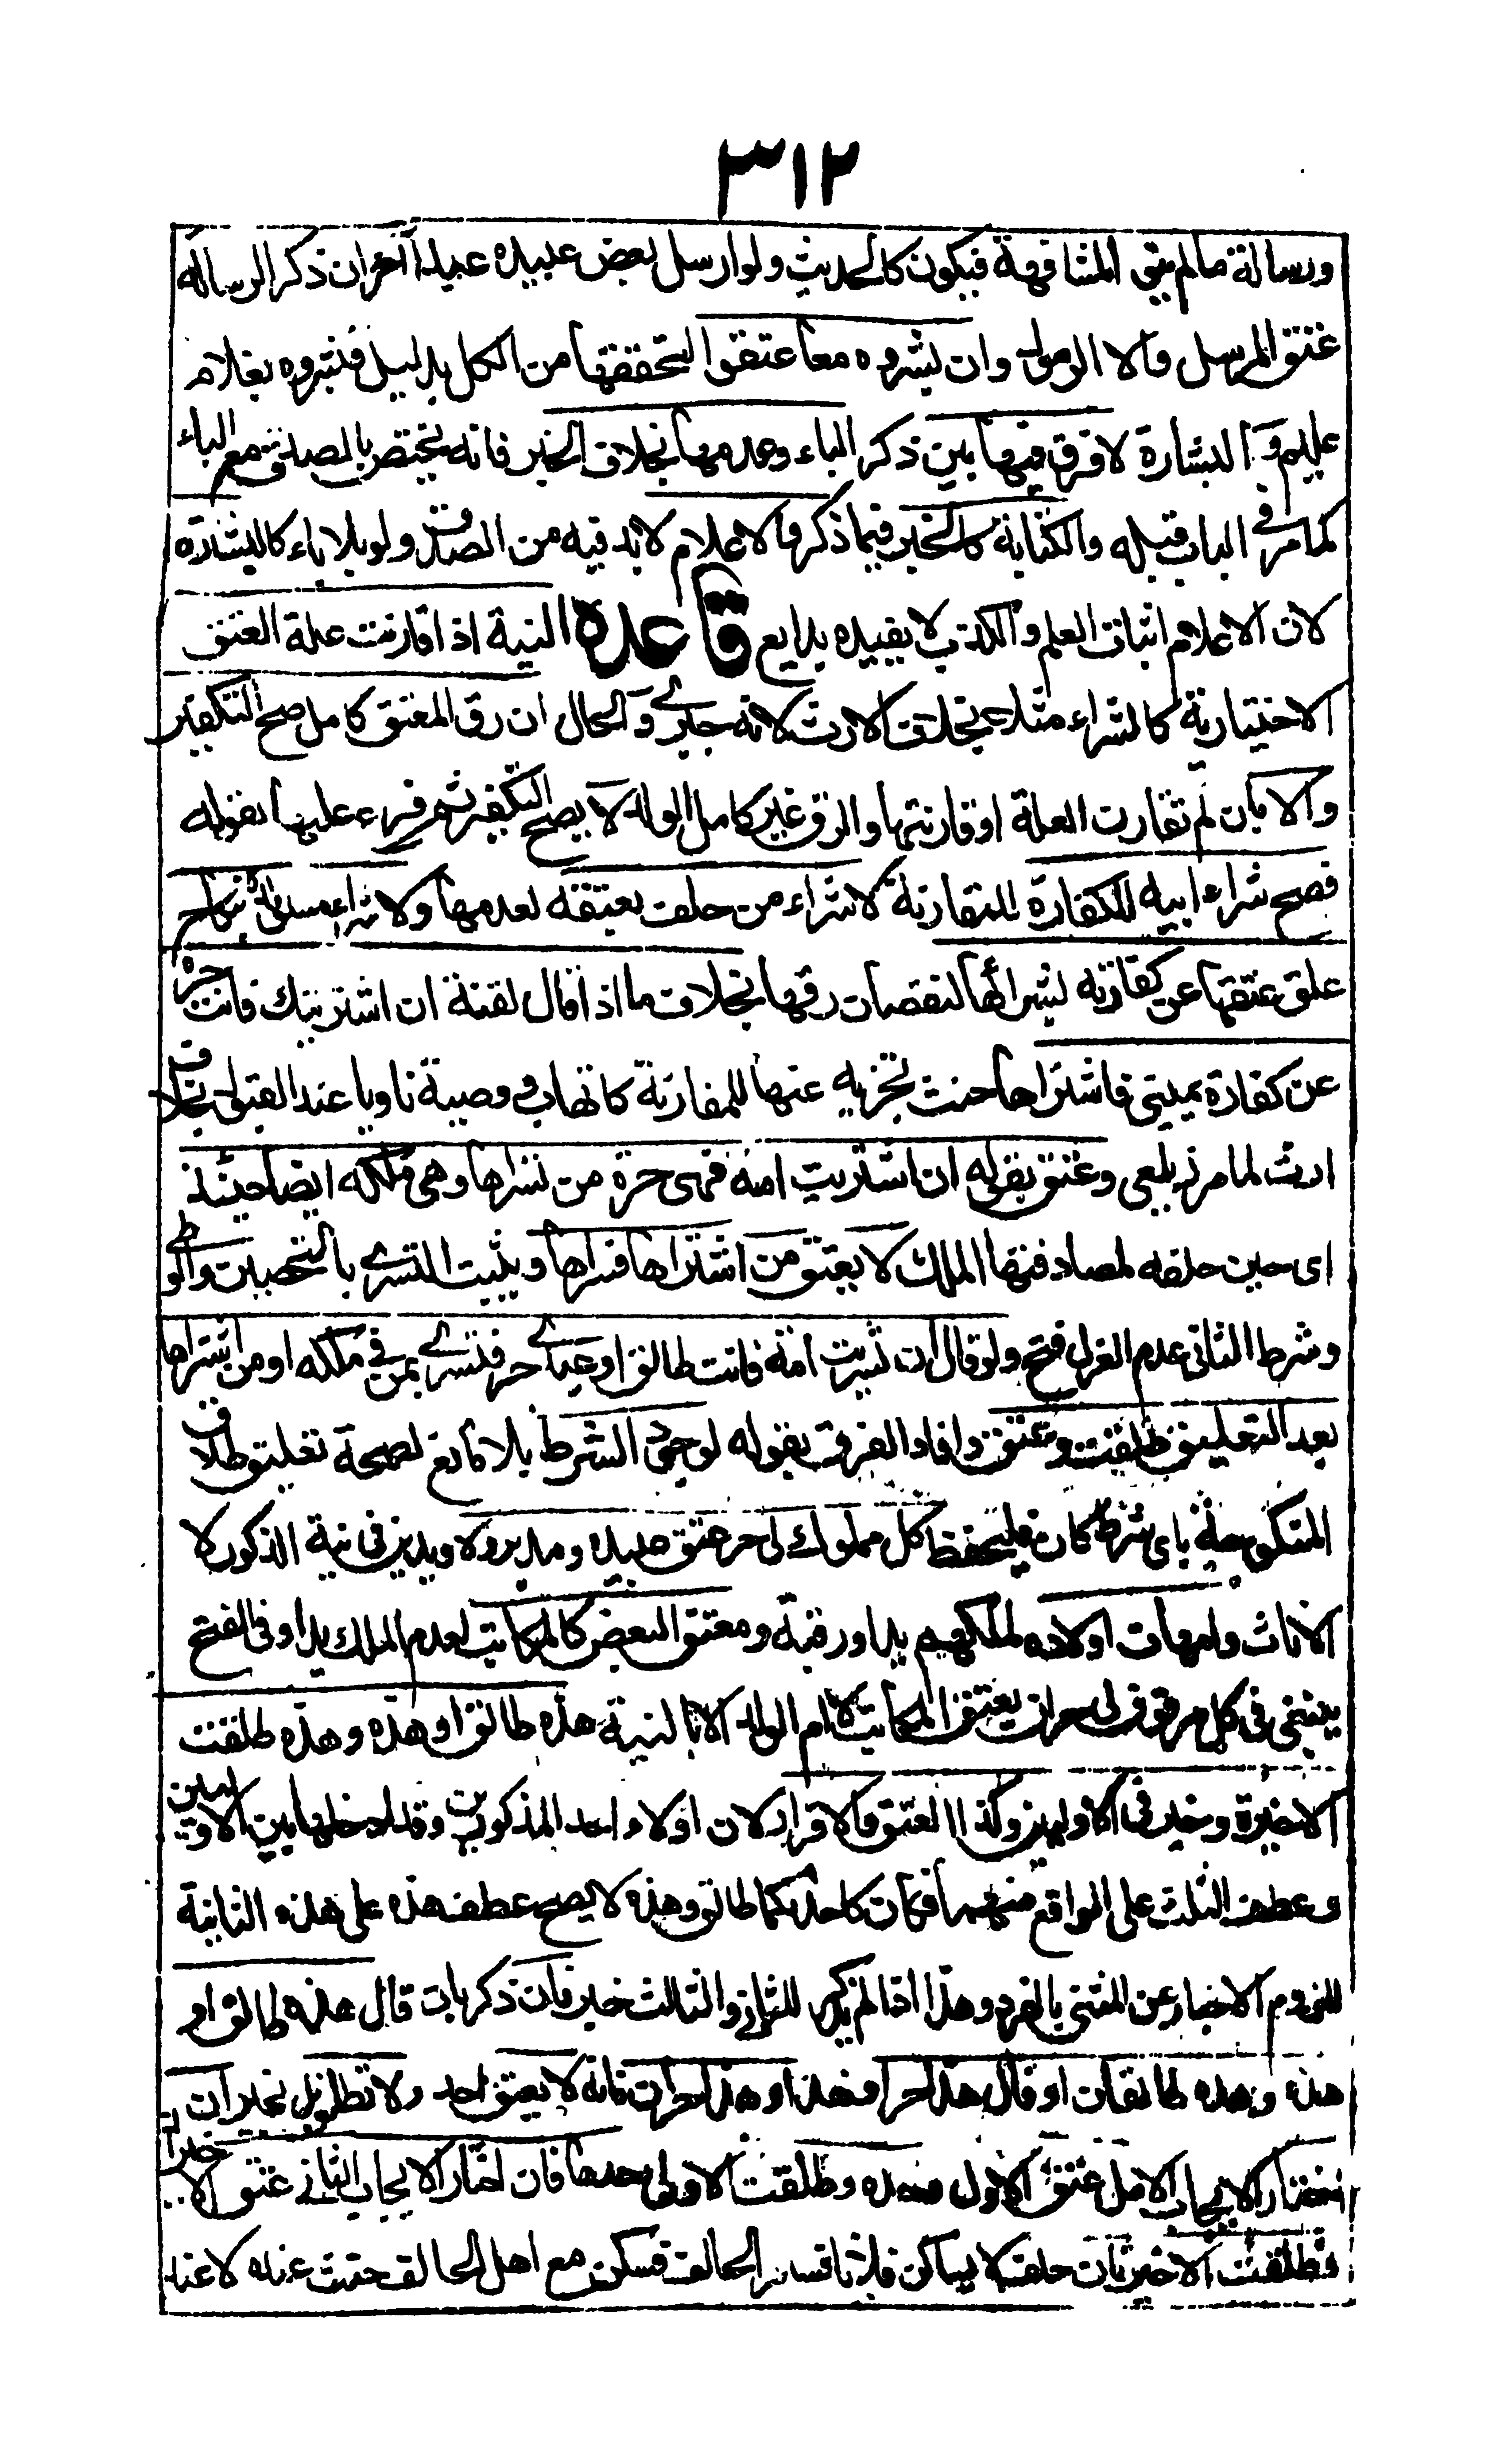 ٣١٢
ورسالة مالم ينو المشافهة فيكون كالحديث ولو ارسل بعض عبيده عبدا آخر ان ذكر الرسالة
عتق المرسل والا الرسول وان بشروه معا عتقوا لتحققها من الكل بدليل فبشروه بغلام
عليم و البشارة لا فرق فيها بين ذكر الباء وعدمها بخلاف الخبر فانه يختص بالصدق مع الباء
كما مر في الباب قبله والكتابة كالخبر فيما ذكر والاعلام لابد فيه من الصدق ولو بلا باء كالبشارة
لان الاعلام اثبات العلم والكذب لا يفيده بدايع قاعده النية اذا قارنت علة العتق
الاختيارية كالشراء مثلا بخلاف الارث لانه جبري و الحال ان رق المعتق كامل صح التكفير
والا بان لم تقارن العلة او قارنتها والرق غير كامل الولد لا يصح التكفير ثم فرع عليها بقوله
فصح شراء ابيه للكفارة للمقارنة لا شراء من حلف بعتقه لعدمها ولا شراء مستولدة بنكاح
علق عتقها عن كفارته لشرائها لنقصان رقها بخلاف ما اذا قال لقنة ان اشتريتك فانت حرة
عن كفارة يميني فاشتراها حنث تجزيه عنها للمقارنة كاتهاب و وصية ناويا عند القبول بخلاف
ارث لما مر زيلعي وعتق بقوله ان اشتريت امة فهي حرة من تسراها وهي ملكه ايضا حينئذ
اى حين حلفه لمصادفتها الملك لا يعتق من اشتراها فتسراها ويثبت التسري بالتحصين والوطى
وشرط الثانى عدم العزل فتح ولو قال ان تسريت امة فانت طالق او عبدي حر فتسرى بمن في ملكه او من اشتراها
بعد التعليق طلقت وعتق وافاد الفرق بقوله لوجود الشرط بلا مانع لصحة تعليق طلاق
المنكوحة باى شرط كان فليحفظ كل مملوك لى حر عتق عبيده ومدبروه ويدين فى نية الذكور لا
الاناث وامهات اولاده لملكهم يدا ورقبة ومعتق البعض كالمكاتب لعدم الملك يدا وفى الفتح
ينبغى فى كل مرقوق لى حر ان يعتق المكاتب لا ام الولد الا بالنية هذه طالق او هذه وهذه طلقت
الاخيرة وخير فى الاوليين وكذا العتق والاقرار لان او لاحد المذكورين وقد ادخلها بين الاوليين
وعطف الثالث على الواقع منهما فكان كاحدكما طالق وهذه لا يصح عطف هذه على هذه الثانية
للزوم الاخبار عن المثنى بالمفرد وهذا اذا لم يذكر للثاني والثالث خبر فان ذكر بان قال هذه طالق او
هذه وهذه طالقان او قال هذا حر او هذا وهذا حران فانه لا يعتق احد ولا تطلق بل يخير ان
اختار الايجاب الاول عتق الاول وحده وطلقت الاولى وحدها فان اختار الايجاب الثاني عتق الاخيران
وطلقت الاخيرتان حلف لا يساكن فلانا فسافر الحالف فسكن مع اهل الحالف حنث عنده لا عند